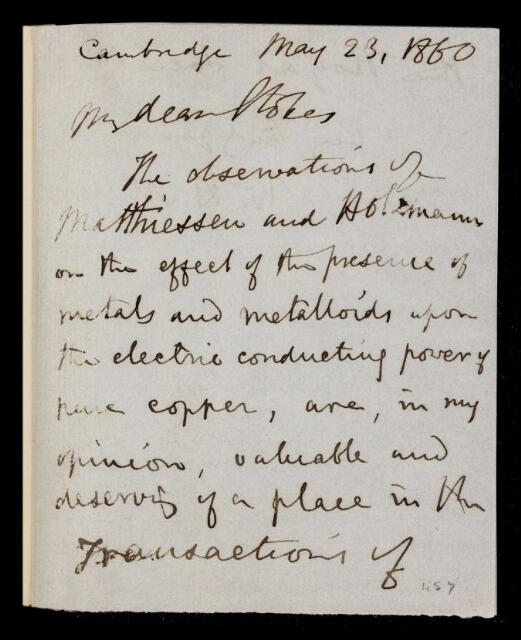 Cambridge May 23, 1860
My dear Stokes
The observations of
Matthiessen and Holzmann
on the effect of the presence of
metals and metalloids upon
the electric conducting power of
pure copper, are, in my
opinion, valuable and
deserving of a place in the
Transactions of
457